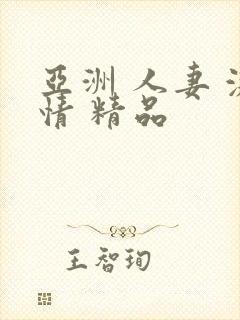 亞洲人妻
情精品
王智珣